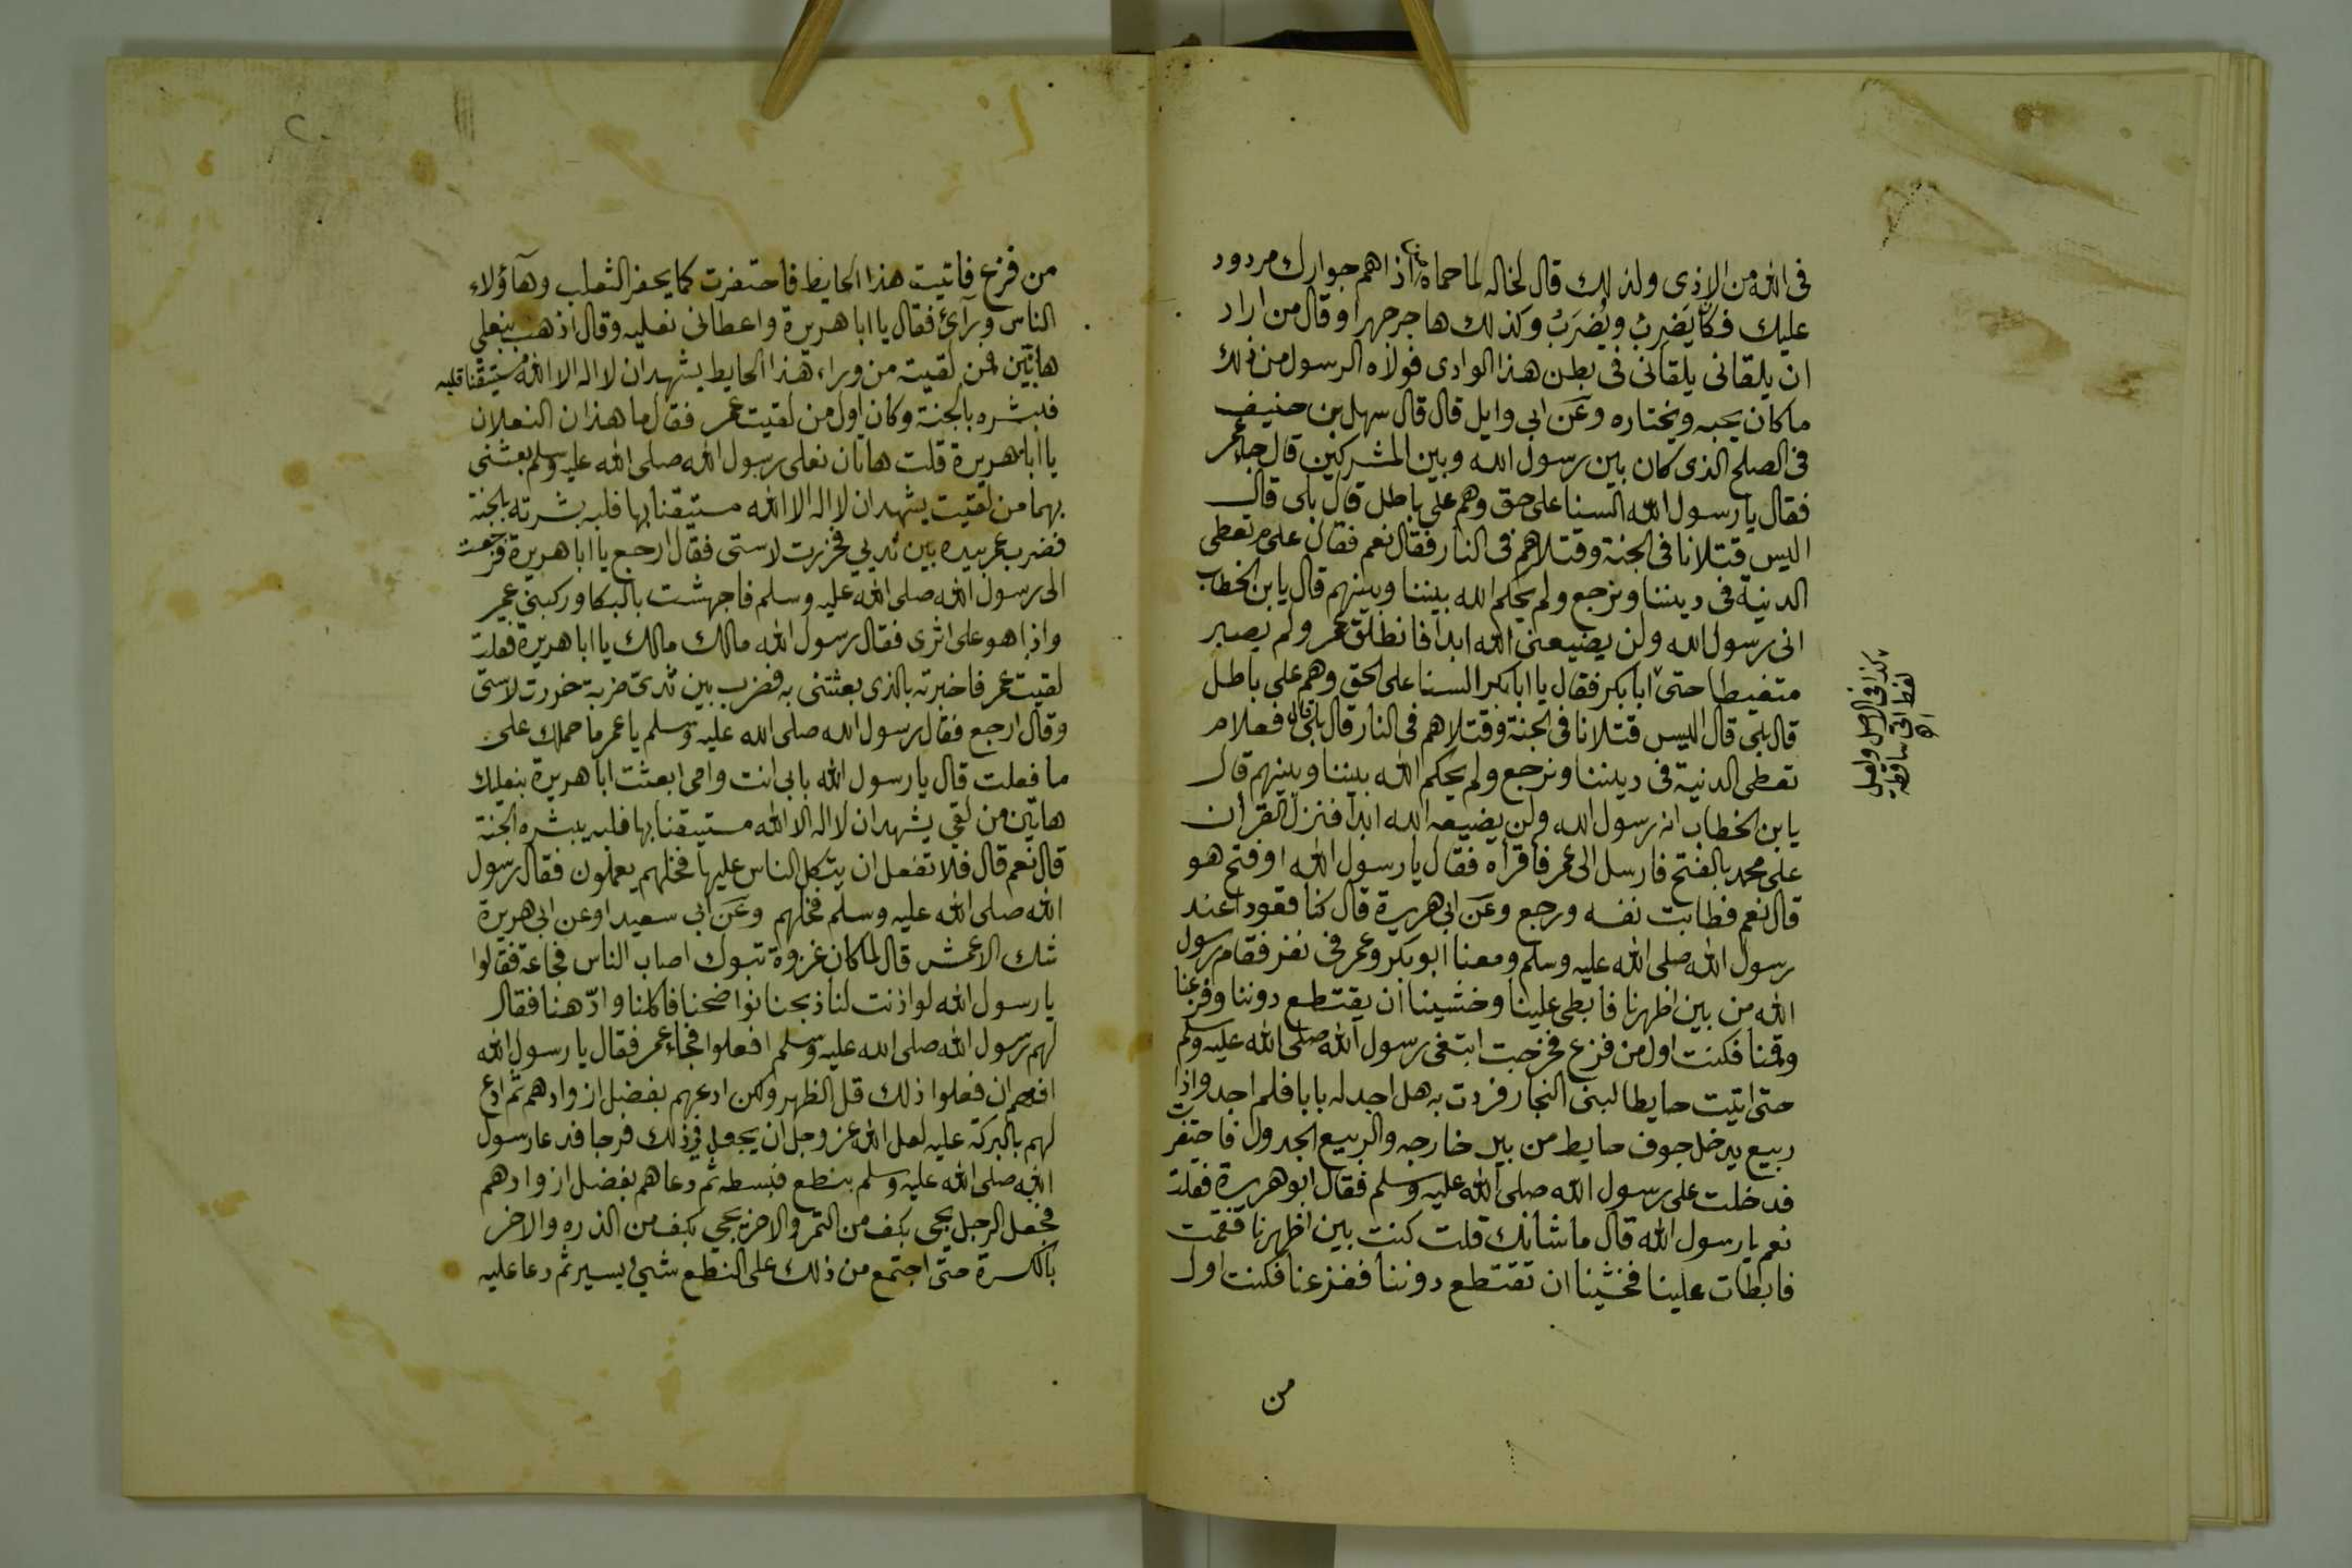 فى الله من الاذى ولذلك قال لخاله لما حماه اذا هم جوارك مردود
عليك فكان يَضرِبُ ويُضرَبُ وكذلك هاجر جهرا وقال من اراد
ان يلقانى يلقانى فى بطن هذا الوادى فولاه الرسول من ذلك
ما كان يحبه ويختاره وعَن ابى وايل قال قال سهل بن حنيف
فى الصلح الذى كان بين رسول الله وبين المشركين قال جاء عمر
فقال يا رسول الله السنا على حق وهم على باطل قال بلى قال
اليس قتلانا فى الجنة وقتلاهم فى النار فقال نعم فقال علىم نعطى
الدنية فى ديننا ونرجع ولم يحكم الله بيننا وبينهم قال يا بن الخطاب
انى رسول الله ولن يضيعنى الله ابدا فانطلق عمر ولم يصبر
متغيطا حتى ابا بكر فقال يا ابا بكر السنا على الحق وهم على باطل
قال بلى قال اليس قتلانا فى الجنة وقتلاهم فى النار قال بلى قال فعلام
نعطى الدنية فى ديننا ونرجع ولم يحكم الله بيننا وبينهم قال
يا بن الخطاب انه رسول الله ولن يضيعه الله ابدا فنزل القران
على محمد بالفتح فارسل الى عمر فاقراه فقال يا رسول الله او فتح هو
قال نعم فطابت نفسه ورجع وعَن ابى هريرة قال كنا قعودا عند
رسول الله صلى الله عليه وسلم ومعنا ابو بكر وعمر فى نفر فقام رسول
الله من بين اظهرنا فابطى علينا وخشينا ان يقتطع دوننا وفزعنا
وقمنا فكنت اول من فزع فخرجت ابتغى رسول الله صلى الله عليه وسلم
حتى اتيت حايطا لبنى النجار فردت به هل اجد له بابا فلم اجد واذا
ربيع يدخل جوف حايط من بير خارجه والربيع الجدول فاحتفرت
فدخلت على رسول الله صلى الله عليه وسلم فقال ابو هريرة فقلت
نعم يا رسول الله قال ما شانك قلت كنت بين اظهرنا فقمت
فابطات علينا فخشينا ان تقتطع دوننا ففزعنا فكنت اول
من
كذا فى الاصل ولعل
لفظ اتى ساقطه
من فزع فاتيت هذا الحايط فاحتفرت كما يحفر الثعلب وهآؤلاء
الناس ورآئ فقال يا ابا هريرة واعطانى نعليه وقال اذهب بنعلى
هاتَين فمن لقيت من وراء هذا الحايط يشهد ان لا اله الا الله مستيقنا قلبه
فبشره بالجنة وكان اول من لقيت عمر فقال ما هذان النعلان
يا ابا هريرة قلت هاتان نعلى رسول الله صلى الله عليه وسلم بعثنى
بهما من لقيت يشهد ان لا اله الا الله مستيقنا بها قلبه بشرته بالجنة
فضرب عمر بيده بين ثديي فخررت لاستى فقال ارجع يا ابا هريرة فرجعت
الى رسول الله صلى الله عليه وسلم فاجهشت بالبكا وركبني عمر
واذا هو على اثرى فقال رسول الله مالك مالك يا ابا هريرة فقلت
لقيت عمر فاخبرته بالذى بعثتنى به فضرب بين ثدىّ ضربة خررت لاستى
وقال ارجع فقال رسول الله صلى الله عليه وسلم يا عمر ما حملك على
ما فعلت قال يا رسول الله بابى انت وامى ابعثت ابا هريرة بنعليك
هاتين من لقي يشهد ان لا اله الا الله مستيقنا بها قلبه يبشره الجنة
قال نعم قال فلا تفعل ان يتكل الناس عليها فخلهم يعملون فقال رسول
الله صلى الله عليه وسلم فخلهم وعَن ابى سعيد او عن ابى هريرة
شك الاعمش قال لما كان غزوة تبوك اصاب الناس مجاعة فقالوا
يا رسول الله لو اذنت لنا ذبحنا نواضحنا فاكلنا وادّهنا فقال
لهم رسول الله صلى الله عليه وسلم افعلوا فجاء عمر فقال يا رسول الله
انهم ان فعلوا ذلك قل الظهر ولكن ادعهم بفضل ازوادهم ثم ادع
لهم بالبركة عليه لعل الله عز وجل ان يجعل فى ذلك فرجا فدعا رسول
الله صلى الله عليه وسلم بنطع فبسطه ثم دعاهم بفضل ازوادهم
فجعل الرجل يجى بكف من التمر والاخر يجي بكف من الذره والاخر
بالكسرة حتى اجتمع من ذلك على النطع شئ يسير ثم دعا عليه